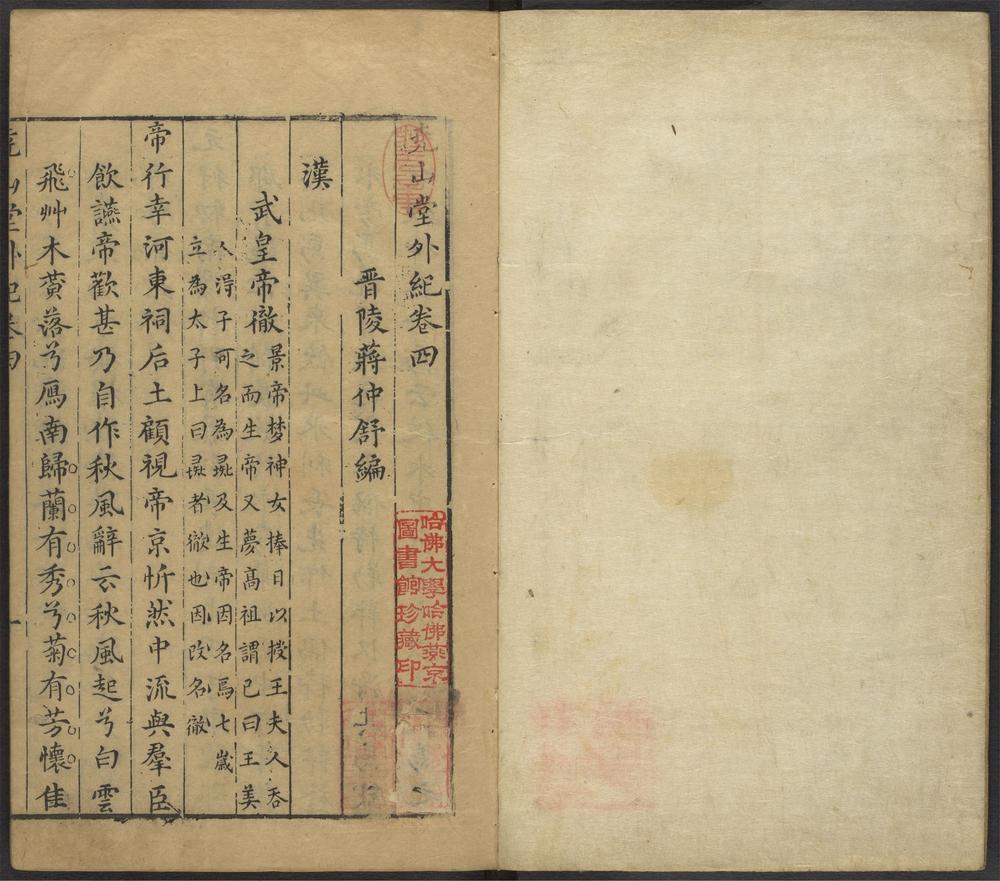 堯山堂外紀卷四
晉陵蔣仲舒編
漢
武皇帝徹景帝梦神女捧日以授王夫人吞
之而生帝又夢高祖謂己曰王美
人淂子可名為彘及生帝因名焉七歲
立為太子上曰彘者徹也因改名徹
帝行幸河東祠后土顧視帝京忻然中流與羣臣
飲讌帝歡甚乃自作秋風辭云秋風起兮白雲
飛艸木黄落兮鴈南歸蘭有秀兮菊有芳懷佳
堯山堂外紀卷四
一
哈佛大學哈佛燕京
圖書館珍藏印